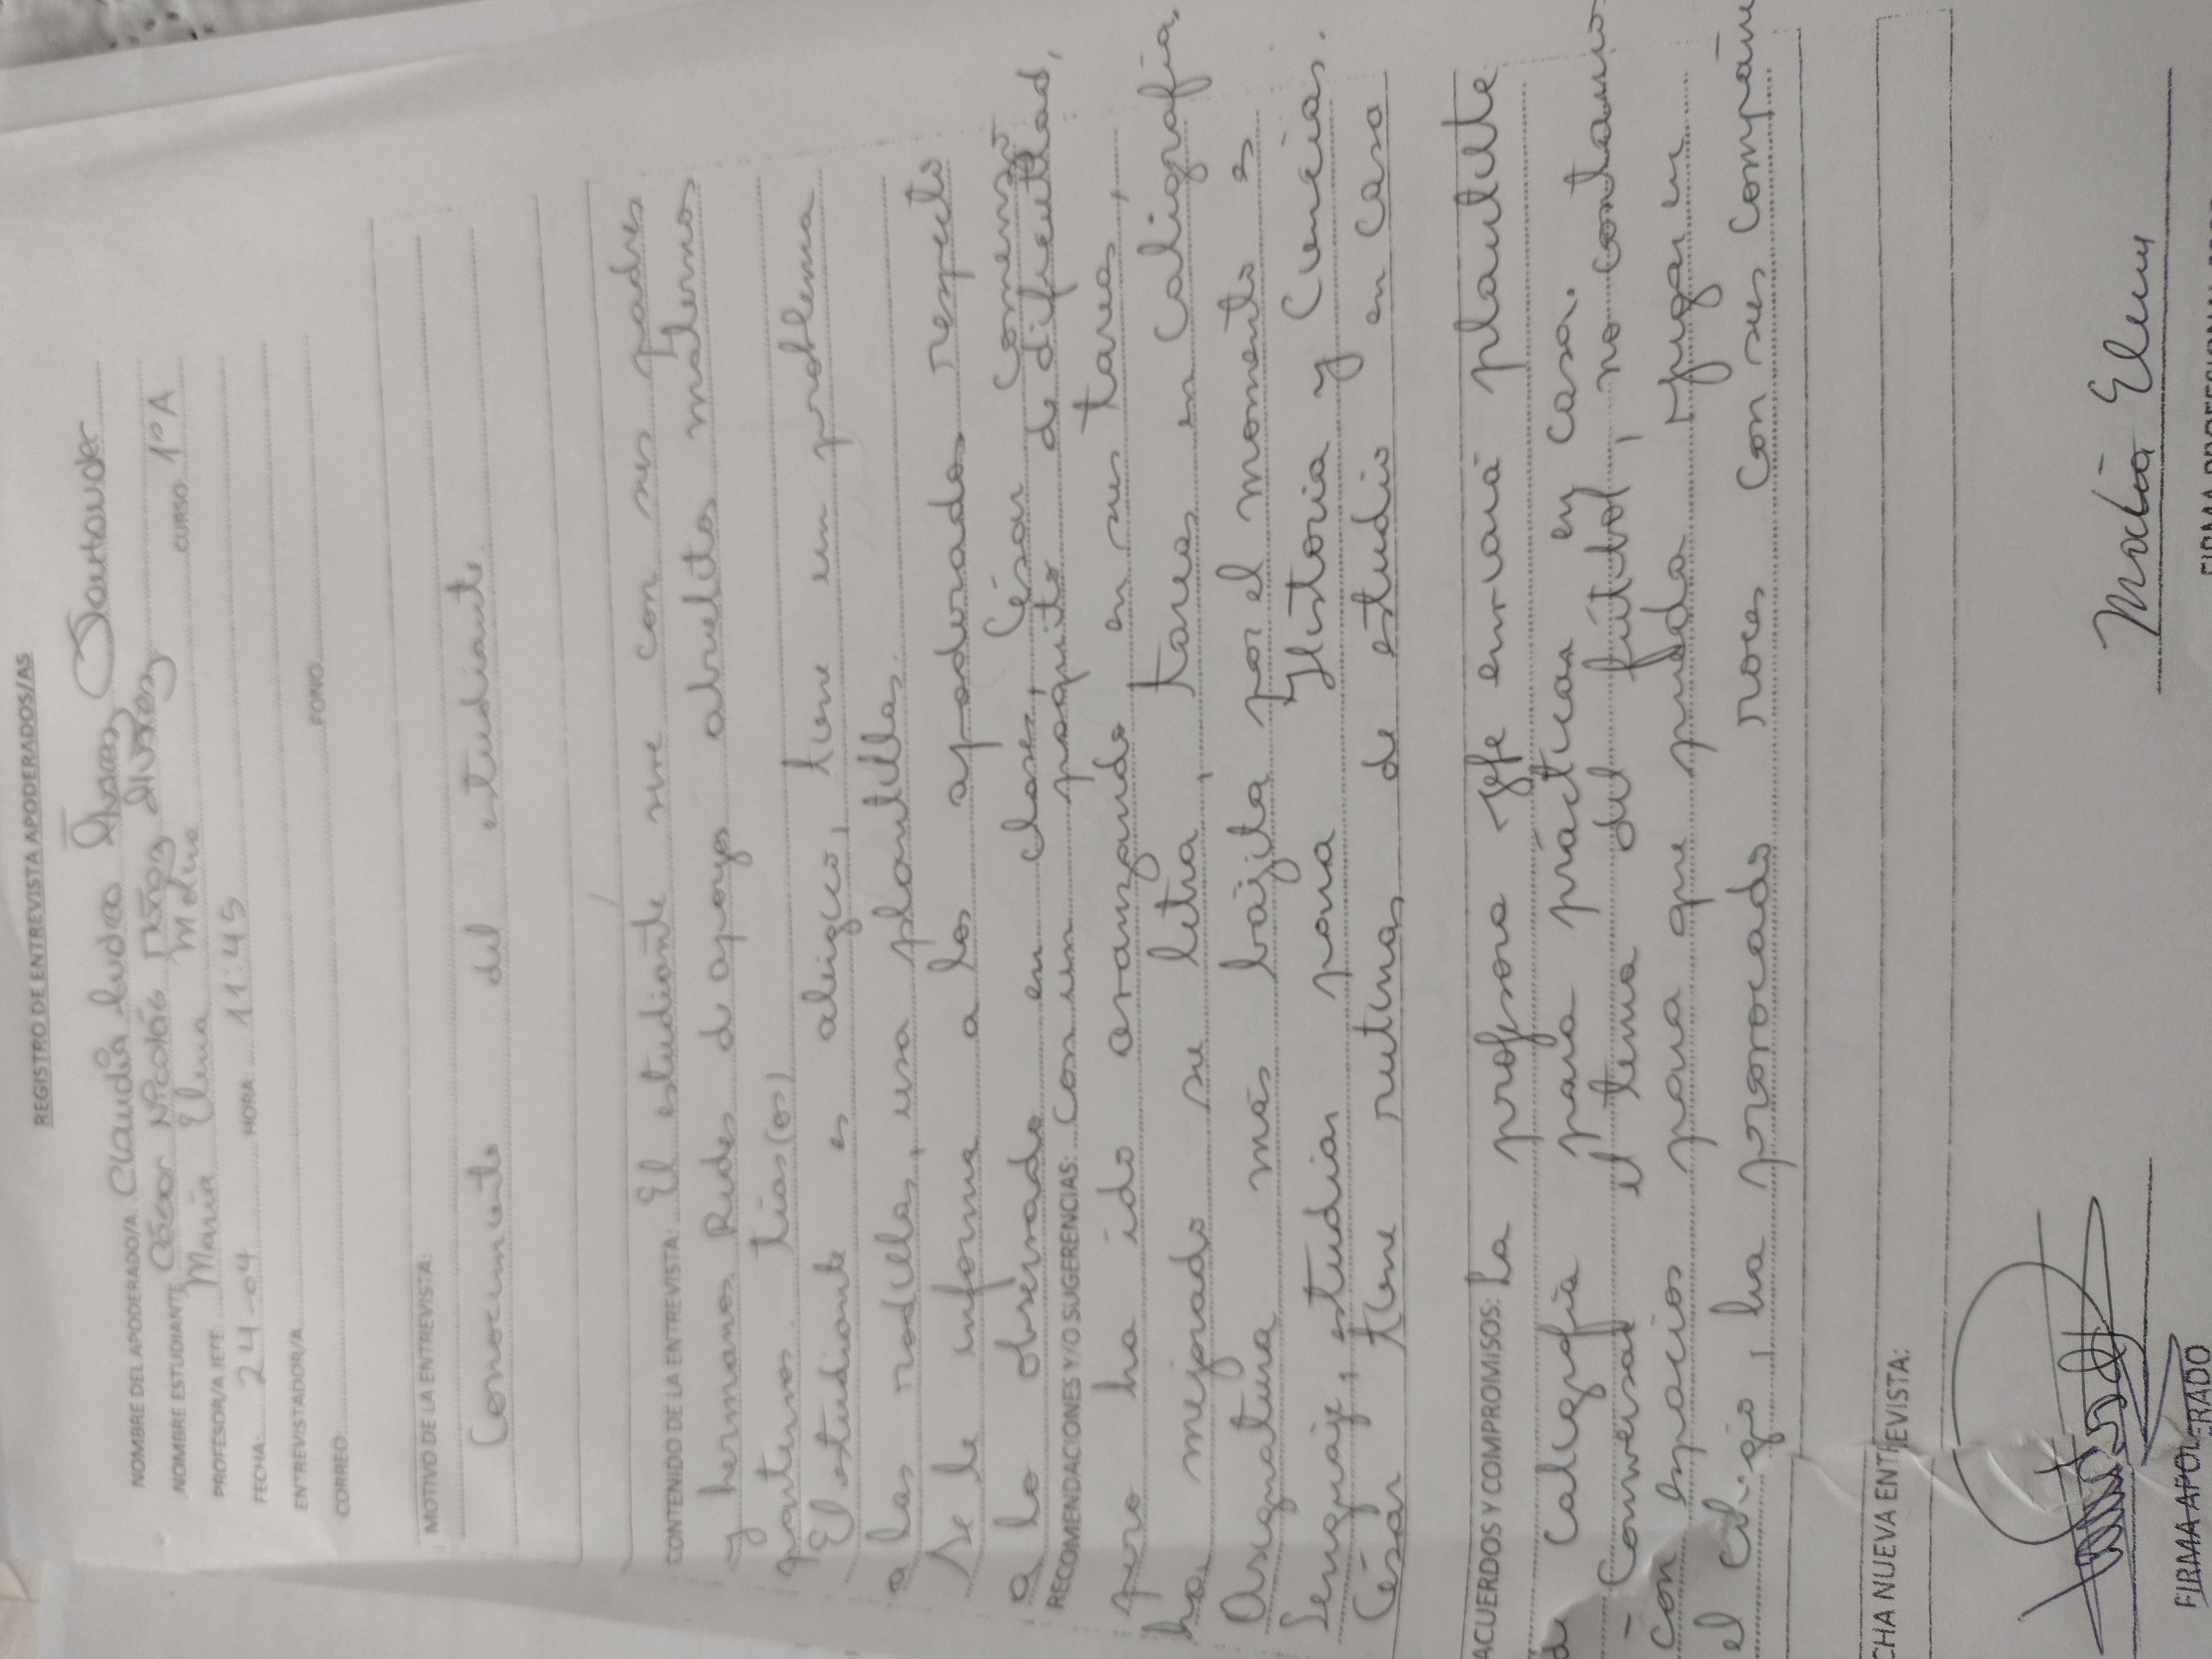 REGISTRO DE ENTREVISTA APODERADOS/AS
NOMBRE DEL APODERADO/A: Claudia Andrea Santander
NOMBRE ESTUDIANTE César Nicolás CURSO 1°A
PROFESOR/A JEFE: María Elena Molina
FECHA: 24-04 HORA: 11:45
ENTREVISTADOR/A
CORREO: FONO:
MOTIVO DE LA ENTREVISTA:
Conocimiento del estudiante.
CONTENIDO DE LA ENTREVISTA: El estudiante vive con sus padres
y hermanos. Redes de apoyo abuelitos maternos
paternos. tías(os)
El estudiante es alérgico, tiene un problema
a las rodillas, usa plantillas.
Se le informa a los apoderados respecto
a lo observado en clases, César comenzó
RECOMENDACIONES Y/O SUGERENCIAS: con un poquito de dificultad,
pero ha ido avanzando en sus tareas,
ha mejorado su letra, tareas en caligrafía,
Asignatura más bajita por el momento es
Lenguaje, estudiar para Historia y Ciencias.
César tiene rutinas de estudio en casa
ACUERDOS Y COMPROMISOS: La profesora jefe enviará plantilla
de caligrafía para practicar en casa.
- Conversar el tema del fútbol, no contamos
con espacios para que pueda jugar en
el colegio, ha provocado roces con sus compañe
CHA NUEVA ENTREVISTA:
FIRMA APODERADO
María Elena